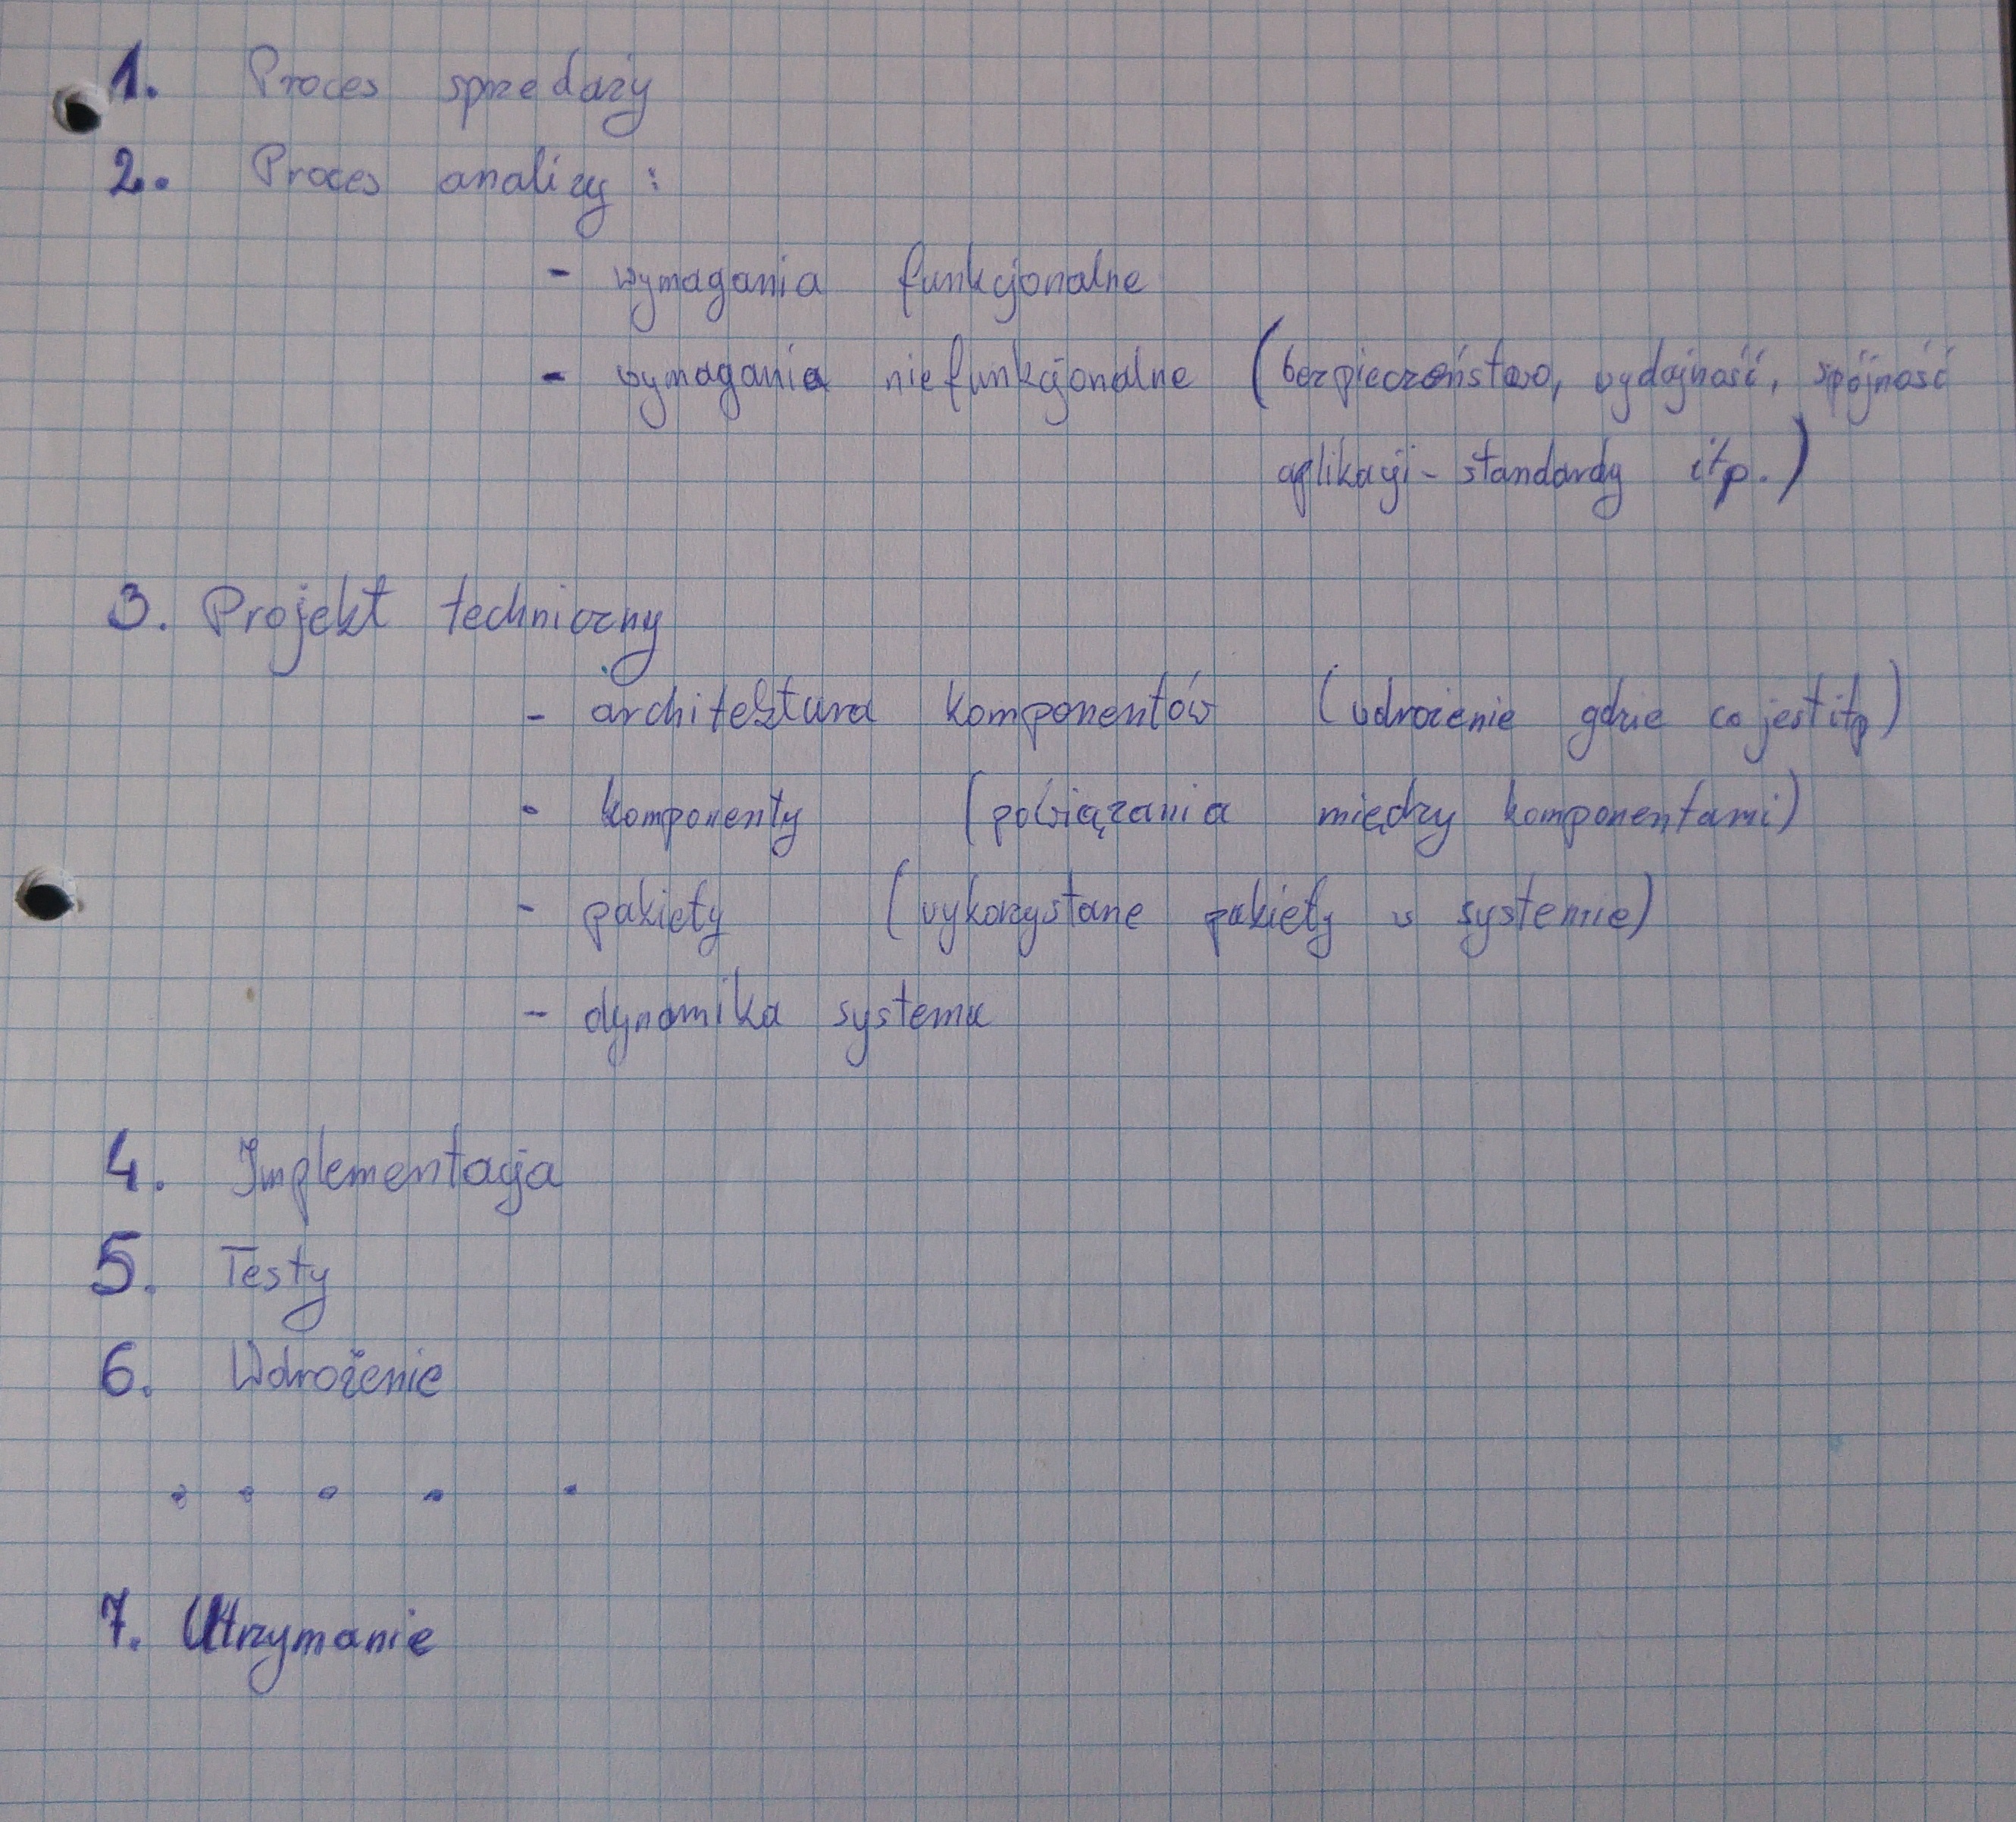 1. Proces sprzedaży
2. Proces analizy :
- wymagania funkcjonalne
- wymagania niefunkcjonalne (bezpieczeństwo, wydajność, spójność
aplikacji - standardy itp.)
3. Projekt techniczny
- architektura komponentów (wdrożenie gdzie co jest itp)
- komponenty (powiązania między komponentami)
- pakiety (wykorzystane pakiety w systemie)
- dynamika systemu
4. Implementacja
5. Testy
6. Wdrożenie
. . . . .
7. Utrzymanie